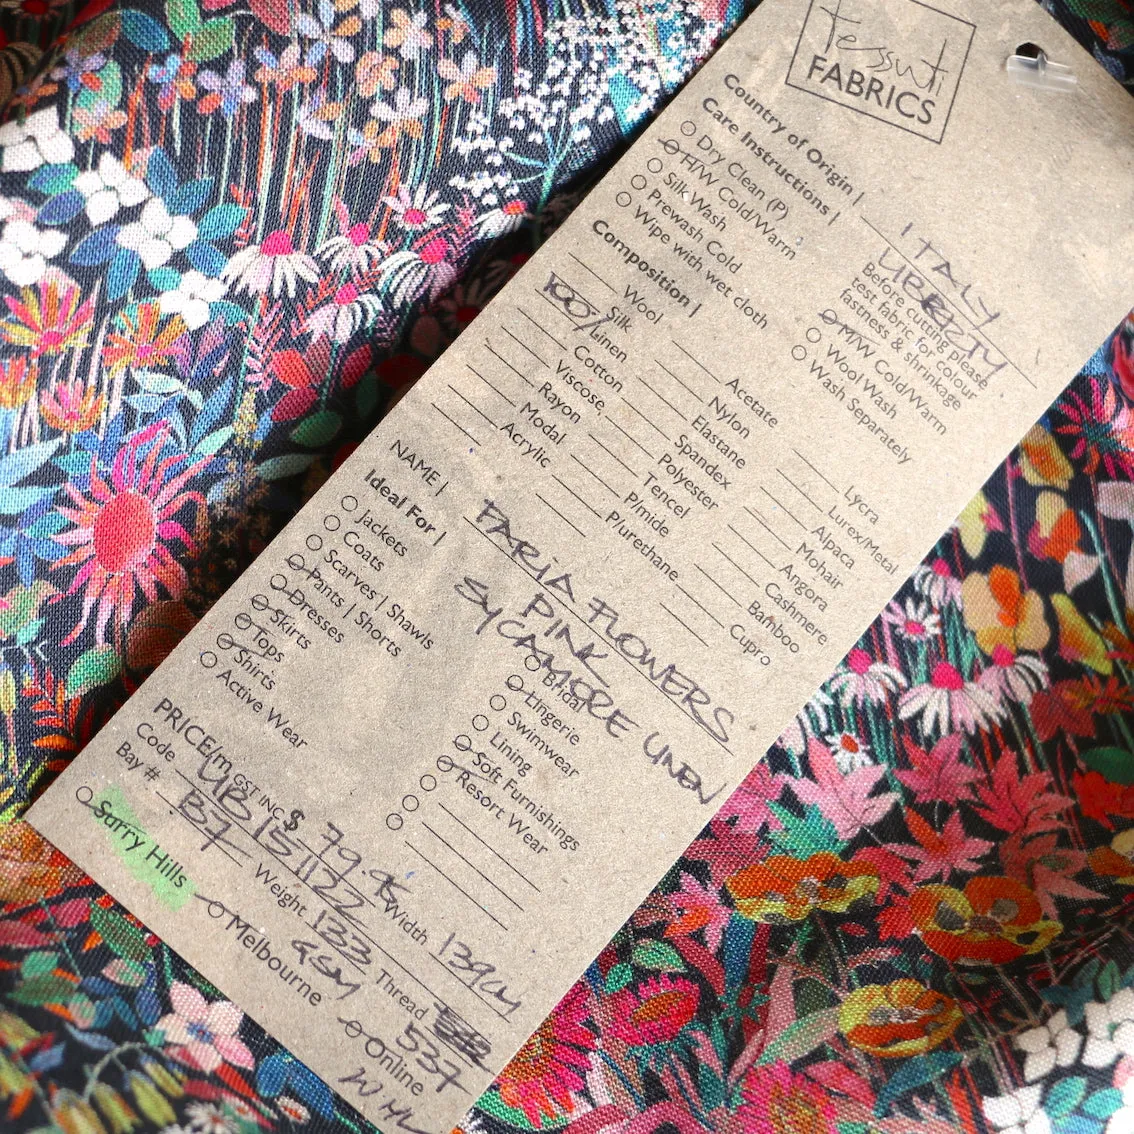 tessuti
FABRICS
Country of Origin | ITALY
LIBERTY
Care Instructions |
Dry Clean (P)
H/W Cold/Warm
Silk Wash
Prewash Cold
Wipe with wet cloth
Before cutting please
test fabric for colour
fastness & shrinkage
M/W Cold/Warm
Wool Wash
Wash Separately
Composition |
Wool
Silk
100% Linen
Cotton
Viscose
Rayon
Modal
Acrylic
Acetate
Nylon
Elastane
Spandex
Polyester
Tencel
P/mide
P/urethane
Lycra
Lurex/Metal
Alpaca
Mohair
Angora
Cashmere
Bamboo
Cupro
NAME | FARIA FLOWERS
PINK
SYCAMORE LINEN
Ideal For |
Jackets
Coats
Scarves | Shawls
Pants | Shorts
Dresses
Skirts
Tops
Shirts
Active Wear
Bridal
Lingerie
Swimwear
Lining
Soft Furnishings
Resort Wear
PRICE/m GST INC $ 79.95
Code LIB151122 Width 139CM
Bay # B7 Weight 133 GSM Thread 537
Surry Hills Melbourne Online